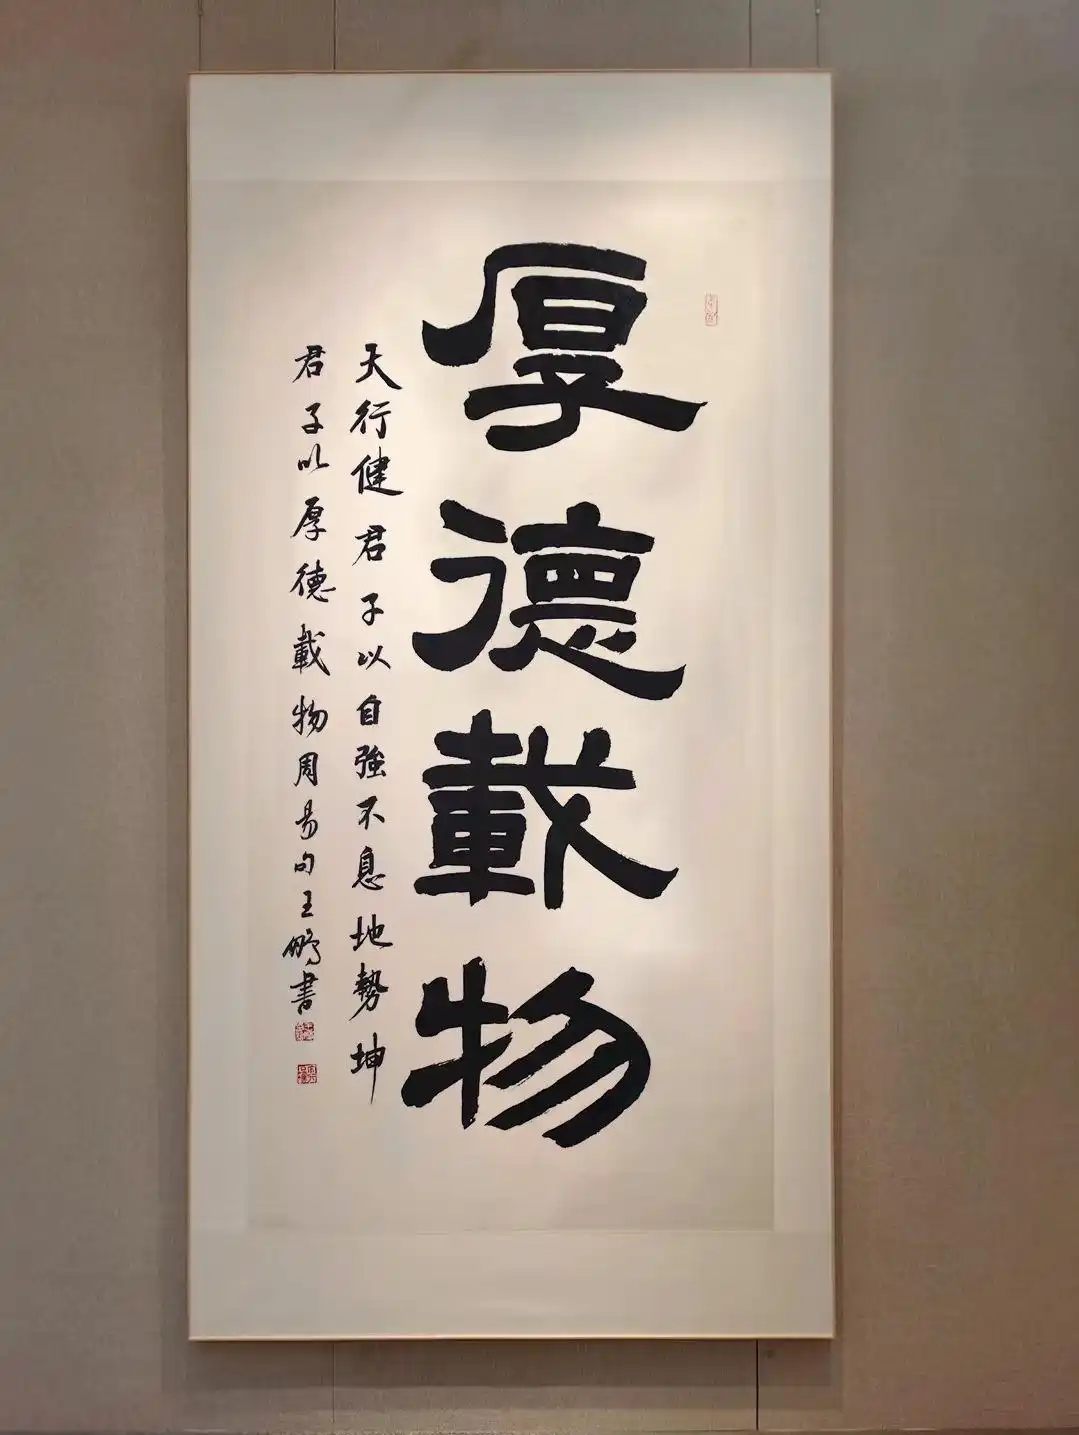 厚德載物
天行健君子以自強不息地勢坤
君子以厚德載物周易句王鵬書